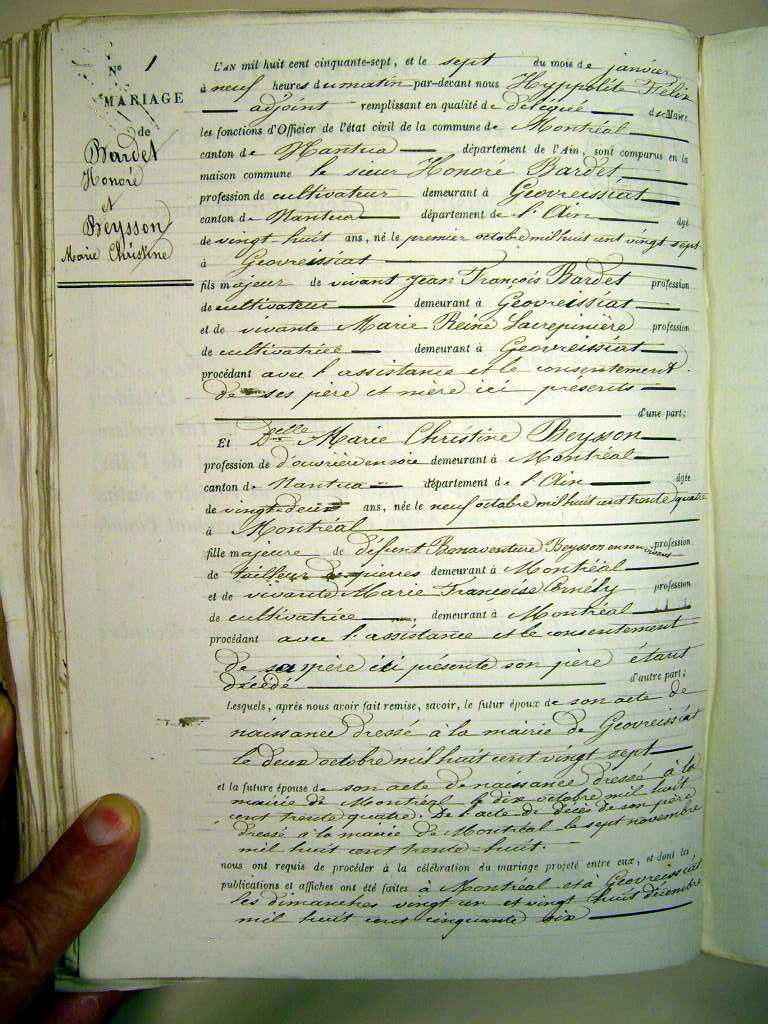 N° 1
MARIAGE
de
Bardet
Honoré
et
Beysson
Marie Christine
L'AN mil huit cent cinquante-sept, et le sept du mois de janvier
à neuf heures du matin par-devant nous Hyppolite Félix
adjoint remplissant en qualité de délégué du Maire
les fonctions d'Officier de l'état civil de la commune de Montréal
canton de Nantua département de l'Ain, sont comparus en la
maison commune le sieur Honoré Bardet
profession de cultivateur demeurant à Géovreissiat
canton de Nantua département de l'Ain âgé
de vingt-huit ans, né le premier octobre mil huit cent vingt sept
à Géovreissiat
fils majeur de vivant Jean François Bardet profession
de cultivateur demeurant à Géovreissiat
et de vivante Marie Reine Lacrepinière profession
de cultivatrice demeurant à Géovreissiat
procédant avec l'assistance et le consentement
de ses père et mère ici présents
d'une part;
Et Delle Marie Christine Beysson
profession d'ouvrière en soie demeurant à Montréal
canton de Nantua département de l'Ain âgée
de vingt-deux ans, née le neuf octobre mil huit cent trente quatre
à Montréal
fille majeure de défunt Bonaventure Beysson en son vivant profession
de tailleur de pierres demeurant à Montréal
et de vivante Marie Françoise profession
de cultivatrice demeurant à Montréal
procédant avec l'assistance et le consentement
de sa mère ici présente son père étant
décédé d'autre part;
Lesquels, après nous avoir fait remise, savoir, le futur époux de son acte de
naissance dressé à la mairie de Géovreissiat
le deux octobre mil huit cent vingt sept
et la future épouse de son acte de naissance dressé à la
mairie de Montréal le dix octobre mil huit
cent trente quatre. De l'acte de décès de son père
dressé à la mairie de Montréal le sept novembre
mil huit cent trente-huit.
nous ont requis de procéder à la célébration du mariage projeté entre eux, et dont les
publications et affiches ont été faites à Montréal et à Géovreissiat
les dimanches vingt un et vingt huit décembre
mil huit cent cinquante six